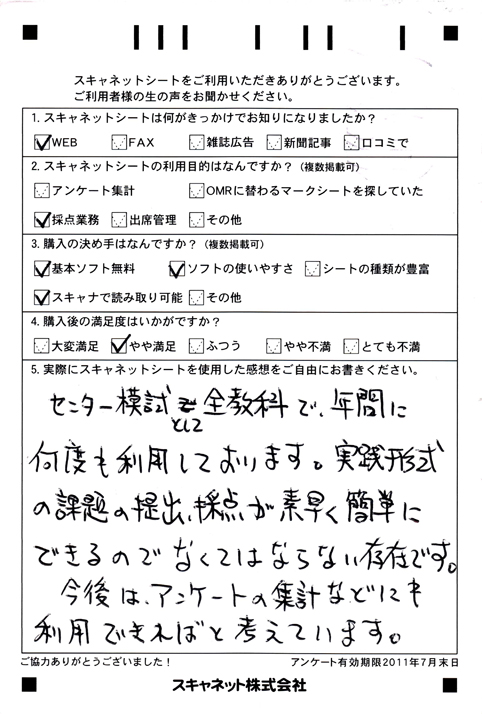 スキャネットシートをご利用いただきありがとうございます。
ご利用者様の生の声をお聞かせください。
1. スキャネットシートは何がきっかけでお知りになりましたか？
WEB FAX 雑誌広告 新聞記事 口コミで
2. スキャネットシートの利用目的はなんですか？（複数掲載可）
アンケート集計 OMRに替わるマークシートを探していた
採点業務 出席管理 その他
3. 購入の決め手はなんですか？（複数掲載可）
基本ソフト無料 ソフトの使いやすさ シートの種類が豊富
スキャナで読み取り可能 その他
4. 購入後の満足度はいかがですか？
大変満足 やや満足 ふつう やや不満 とても不満
5. 実際にスキャネットシートを使用した感想をご自由にお書きください。
センター模試として全教科で、年間に
何度も利用しております。実践形式
の課題の提出、採点が素早く簡単に
できるのでなくてはならない存在です。
今後は、アンケートの集計などにも
利用できればと考えています。
ご協力ありがとうございました！ アンケート有効期限2011年7月末日
スキャネット株式会社